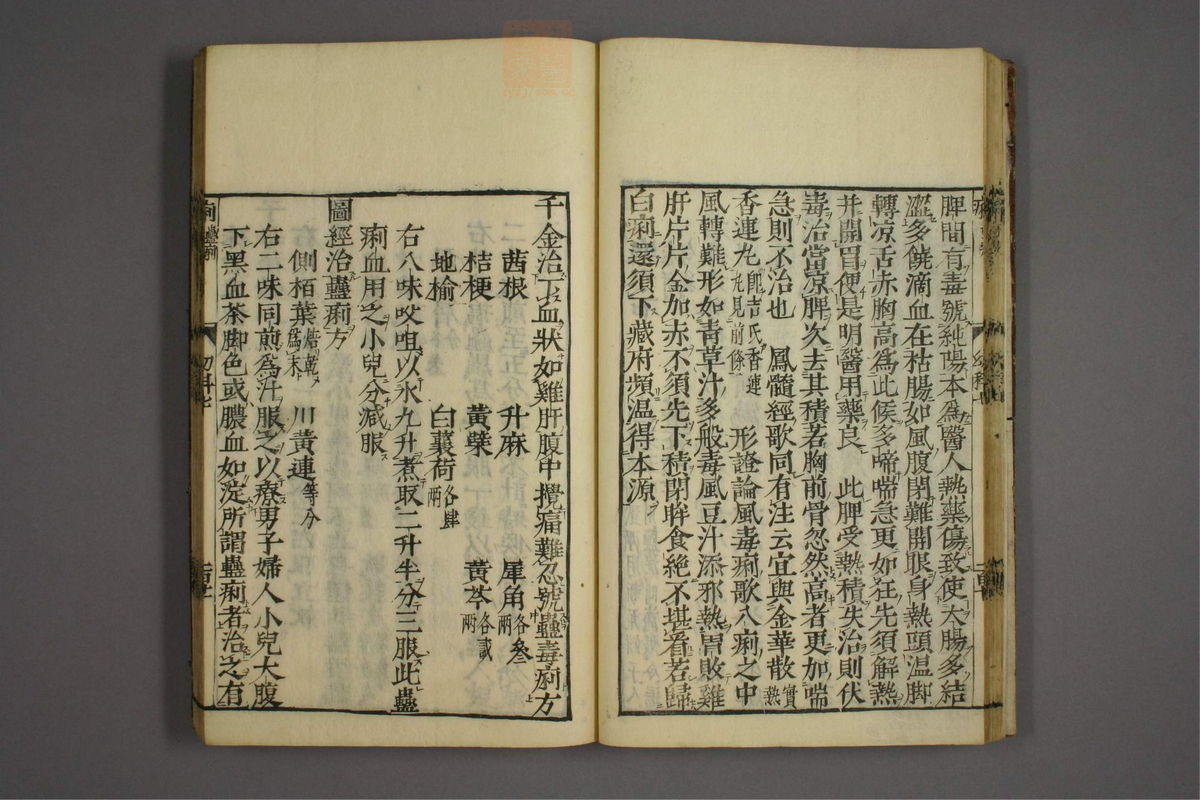 脾間有毒號純陽本為醫人熱藥傷致使大腸多結
澀多饒滴血在枯腸如風腹閉難開眼身熱頭温脚
轉凉舌赤胸高為此候多啼喘急更如狂先須解熱
并開胃便是明醫用藥良 此脾受熱積失治則伏
毒治當凉脾次去其積若胸前骨忽然高者更加喘
急則不治也 鳳髓經歌同有注云宜與金華散實熱
香連丸即吉氏香連丸見前條 形證論風毒痢歌八痢之中
風轉難形如青草汁多般毒風豆汁添邪熱胃敗雞
肝片片金加赤不須先下積閉眸食絶不堪看若歸
白痢還須下藏府頻温得本源
千金治下血狀如雞肝腹中攪痛難忍號蠱毒痢方
茜根 升麻 犀角各叁兩
桔梗 黃蘗 黃芩各貳兩
地榆 白蘘荷各肆兩
右八味㕮咀以水九升煮取二升半分三服此蠱
痢血用之小兒分減服
圖經治蠱痢方
側栢葉焙乾為末 川黃連等分
右二味同煎為汁服之以療男子婦人小兒大腹
下黑血茶脚色或膿血如淀所謂蠱痢者治之有
幼科七